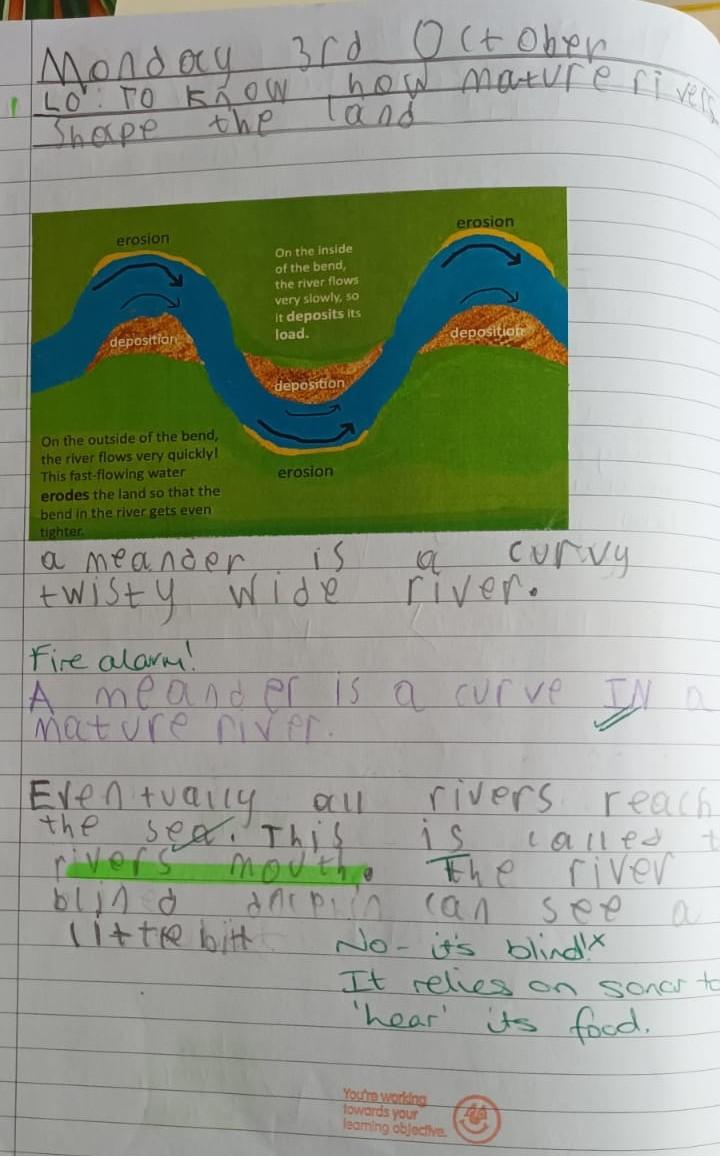 Monday 3rd October
LO: TO Know how mature rivers
Shape the land
erosion
erosion
On the inside
of the bend,
the river flows
very slowly, so
it deposits its
load.
deposition
deposition
deposition
On the outside of the bend,
the river flows very quickly!
This fast-flowing water
erodes the land so that the
bend in the river gets even
tighter.
erosion
a meander is a curvy
twisty wide river.
Fire alarm!
A meander is a curve IN a
mature river.
Eventually all rivers reach
the sea. This is called t
rivers mouth. The river
blind can see a
little bitt
No - it's blind!x
It relies on sonar to
'hear' its food.
You're working
towards your
learning objective.